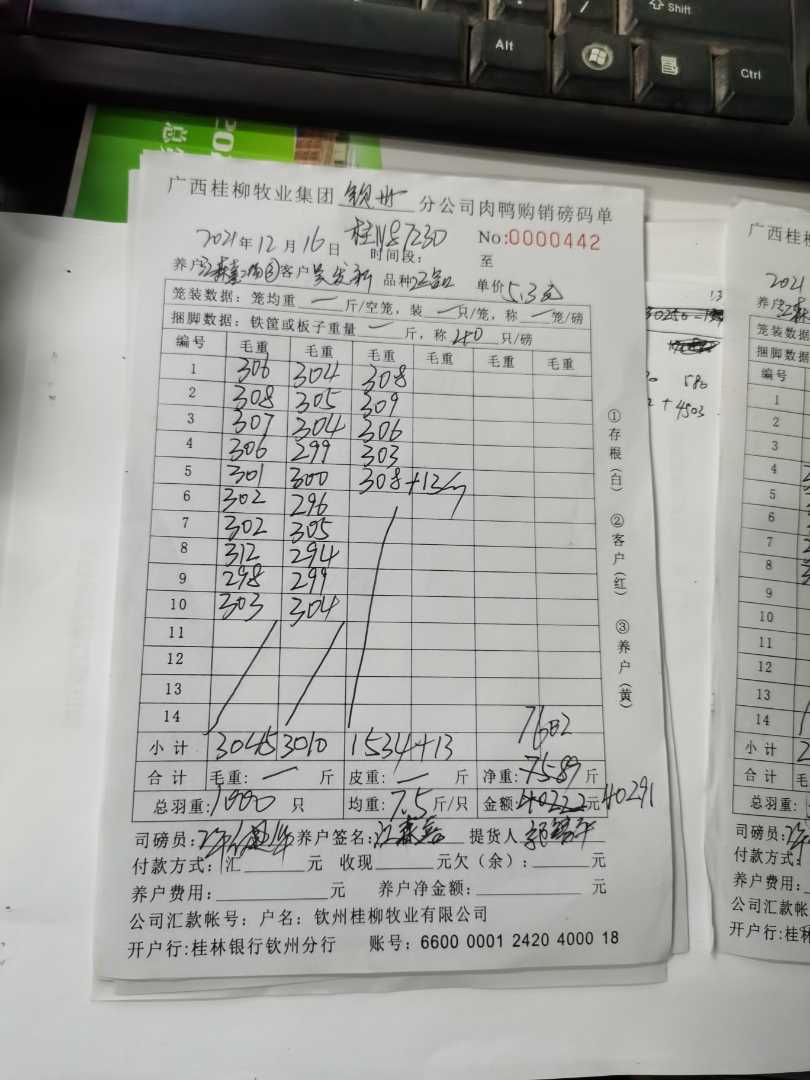 Alt
Shift
Ctrl
广西桂柳牧业集团 钦州 分公司肉鸭购销磅码单
2021年12月16日 No:0000442
时间段: 至
养户 客户 品种 单价5.3元
笼装数据: 笼均重 一 斤/空笼, 装 一 只/笼, 称 一 笼/磅
捆脚数据: 铁筐或板子重量 一 斤, 称 240 只/磅
编号 毛重 毛重 毛重 毛重 毛重 毛重
1 306 304 308
2 308 305 309
3 307 304 306
4 306 299 303
5 301 300 308+13
6 302 296
7 302 305
8 312 294
9 298 299
10 303 304
11
12
13
14
7602
小计 3045 3010 1534+13
合计 毛重: 一 斤 皮重: 一 斤 净重: 7589 斤
总羽重: 1000 只 均重: 7.5 斤/只 金额: 40222 元 40291
司磅员: 养户签名: 江森嘉 提货人
付款方式: 汇 元 收现 元欠(余): 元
养户费用: 元 养户净金额: 元
公司汇款帐号: 户名: 钦州桂柳牧业有限公司
开户行:桂林银行钦州分行 账号: 6600 0001 2420 4000 18
①存根(白) ②客户(红) ③养户(黄)
13
30250
580
+4503
广西桂柳
2021
养户
笼装数据
捆脚数据
编号
1
2
3
4
5
6
7
8
9
10
11
12
13
14
小计
合计
总羽重:
司磅员:
付款方式:
养户费用:
公司汇款帐
开户行:桂林